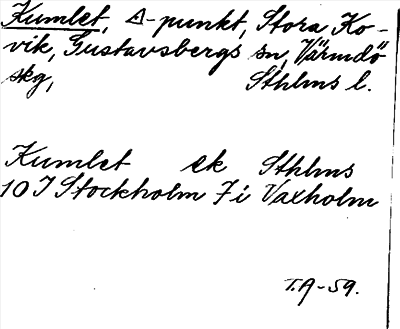 Kumlet, △-punkt, Stora Ko-
vik, Gustavsbergs sn, Värmdö
skg, Sthlms l.
Kumlet ek Sthlms
10 I Stockholm 7 i Vaxholm
T.A-59.